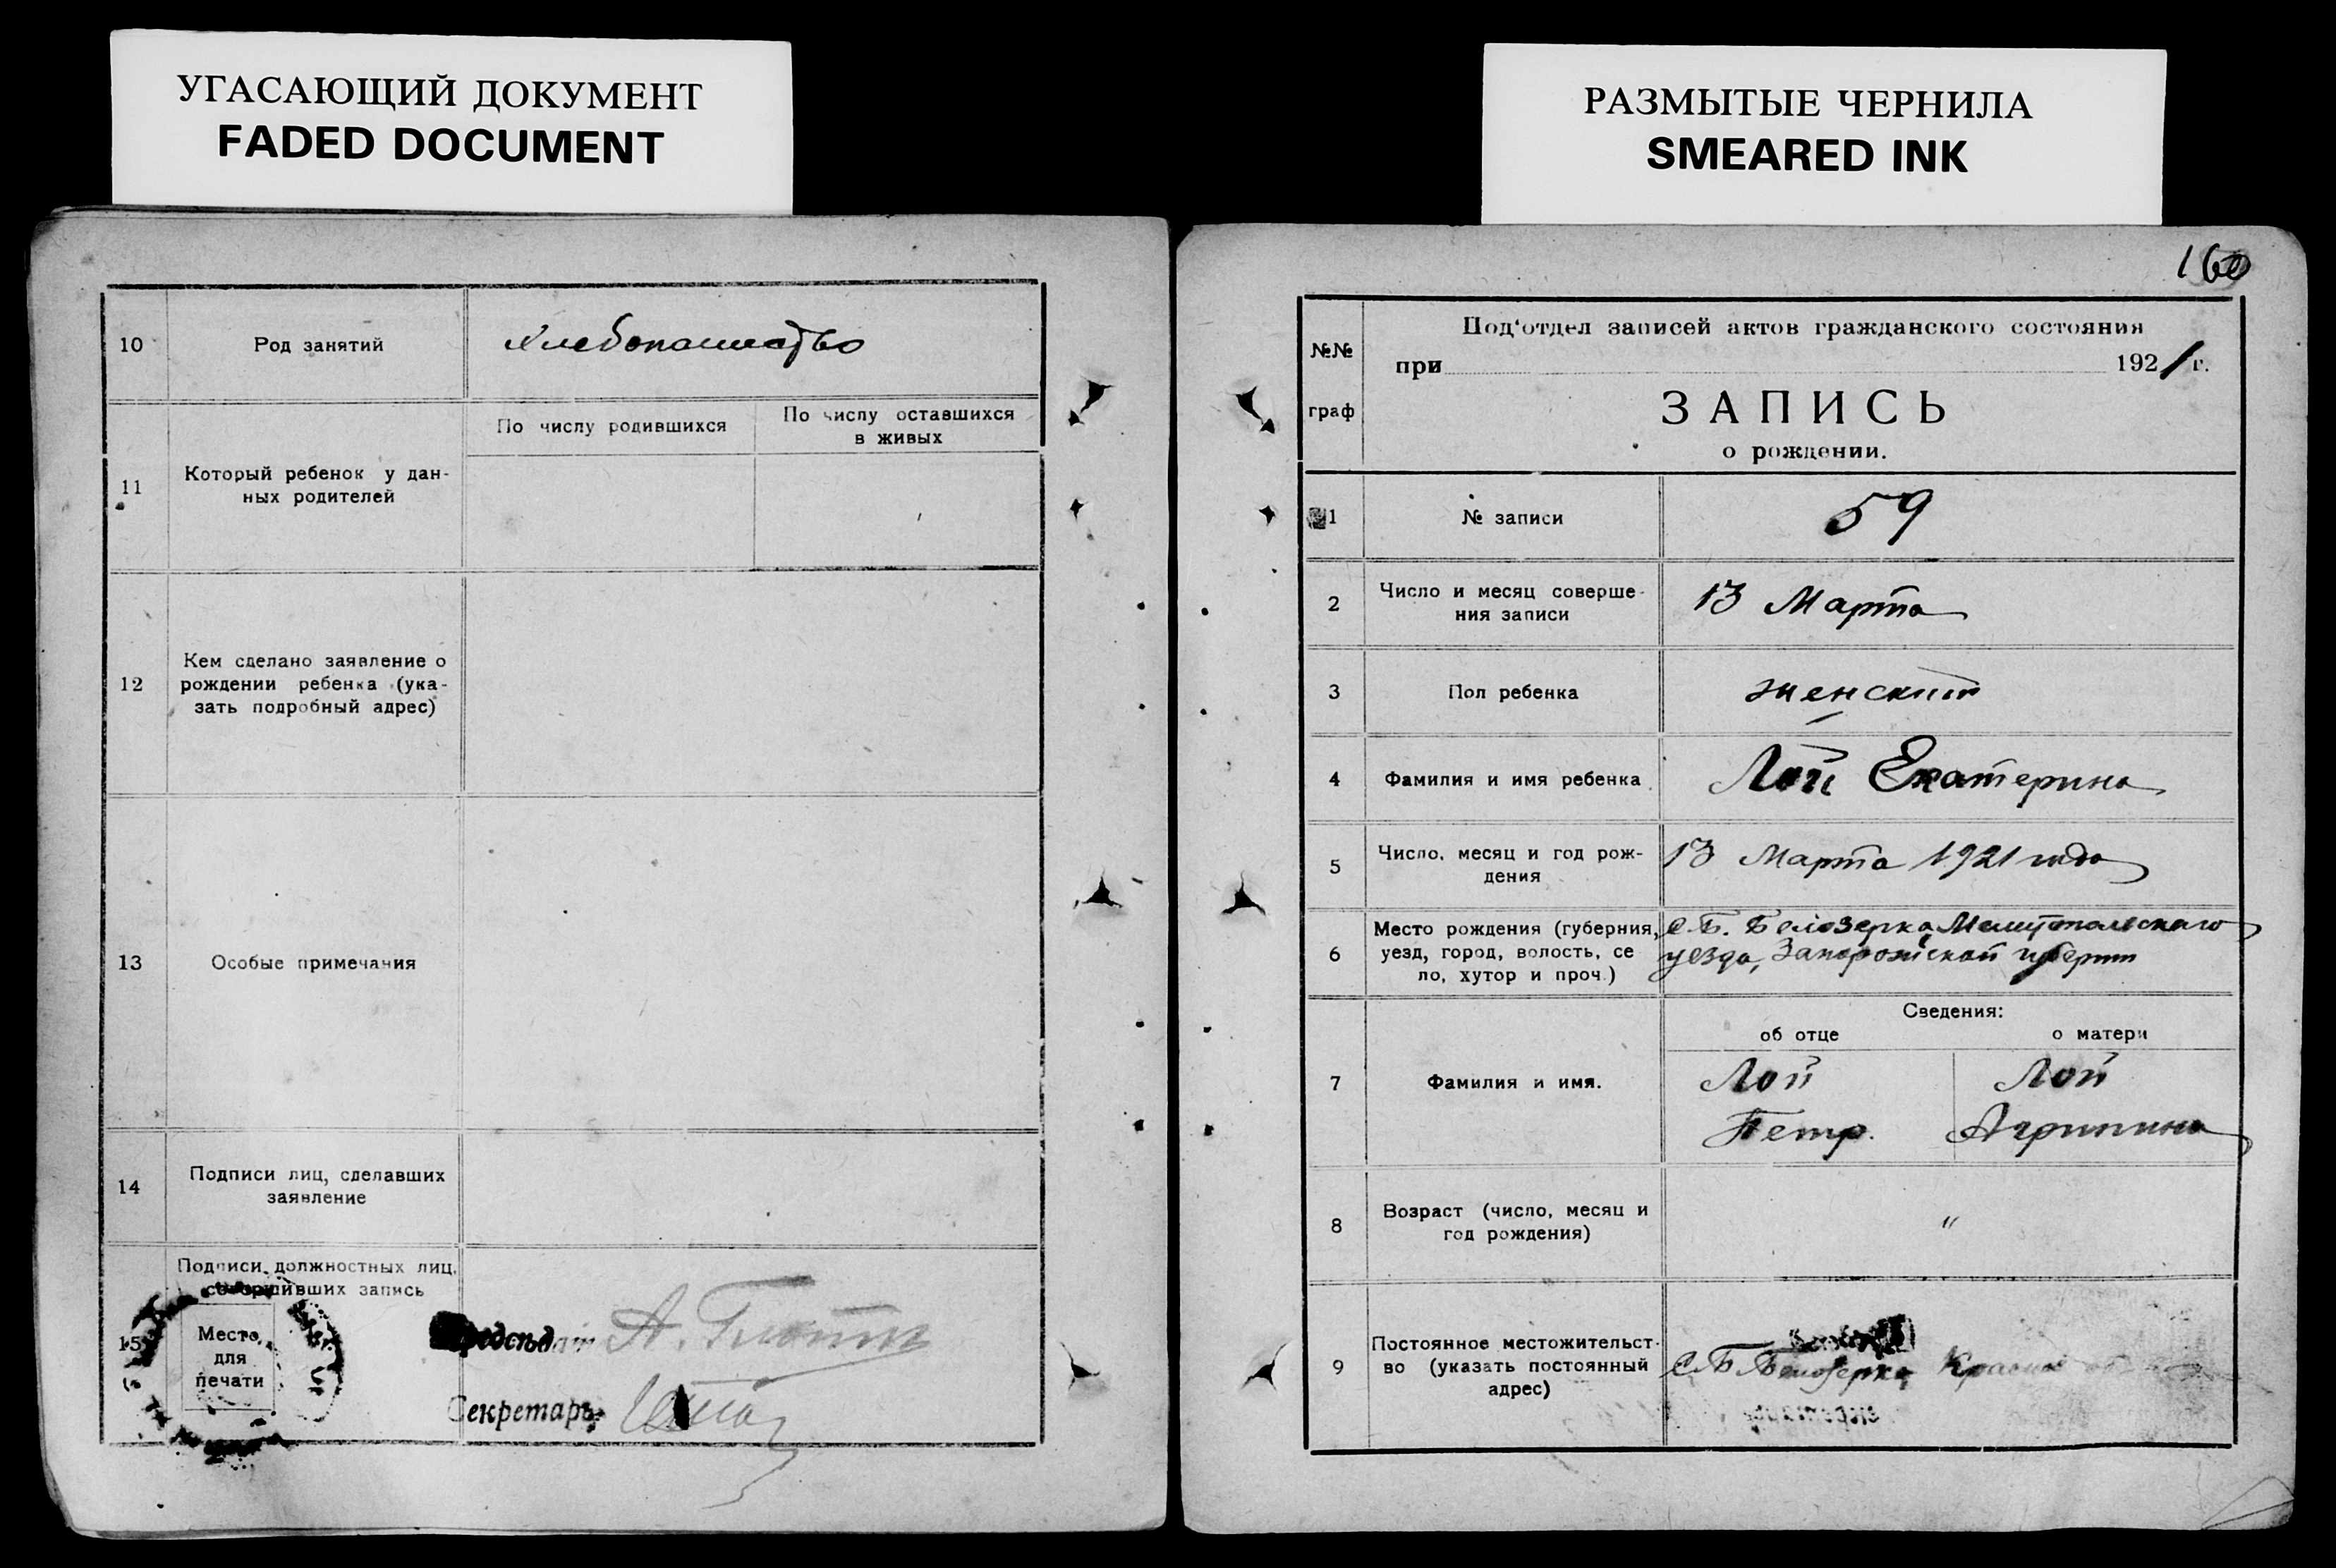 УГАСАЮЩИЙ ДОКУМЕНТ
FADED DOCUMENT
10
Род занятий
хлебопашество
11
Который ребенок у дан-
ных родителей
По числу родившихся
По числу оставшихся
в живых
12
Кем сделано заявление о
рождении ребенка (ука-
зать подробный адрес)
13
Особые примечания
14
Подписи лиц, сделавших
заявление
15
Подписи должностных лиц,
совершивших запись
Место
для
печати
А.
Секретарь
РАЗМЫТЫЕ ЧЕРНИЛА
SMEARED INK
160
№№
граф
Под‘отдел записей актов гражданского состояния
при 1921 г.
ЗАПИСЬ
о рождении.
1
№ записи
59
2
Число и месяц соверше-
ния записи
13 Марта
3
Пол ребенка
женский
4
Фамилия и имя ребенка
Лой Екатерина
5
Число, месяц и год рож-
дения
13 Марта 1921 года
6
Место рождения (губерния,
уезд, город, волость, се
ло, хутор и проч.)
С. Б. Белозерка Мелитопольскаго
уезда, Запорожской губернии
Сведения:
об отце
о матери
7
Фамилия и имя.
Лой
Петр.
Лой
Агрипина
8
Возраст (число, месяц и
год рождения)
"
9
Постоянное местожительст-
во (указать постоянный
адрес)
С. Б. Белозерка